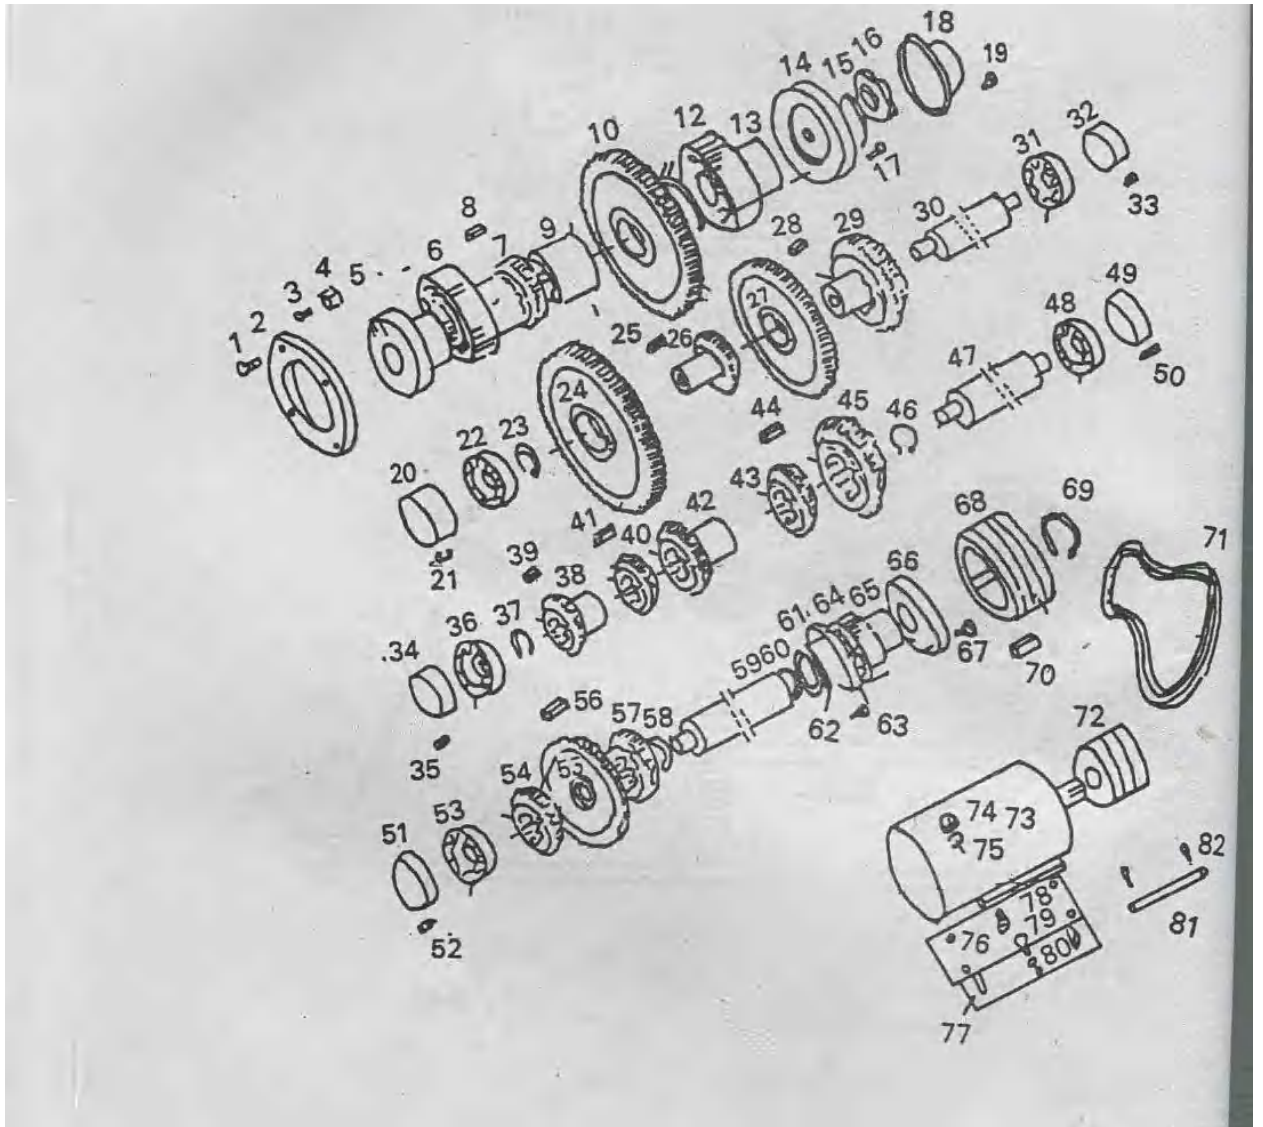 1
2
3
4
5
6
7
8
9
10
11
12
13
14
15
16
17
18
19
20
21
22
23
24
25
26
27
28
29
30
31
32
33
34
35
36
37
38
39
40
41
42
43
44
45
46
47
48
49
50
51
52
53
54
55
56
57
58
59
60
61
62
63
64
65
66
67
68
69
70
71
72
73
74
75
76
77
78
79
80
81
82